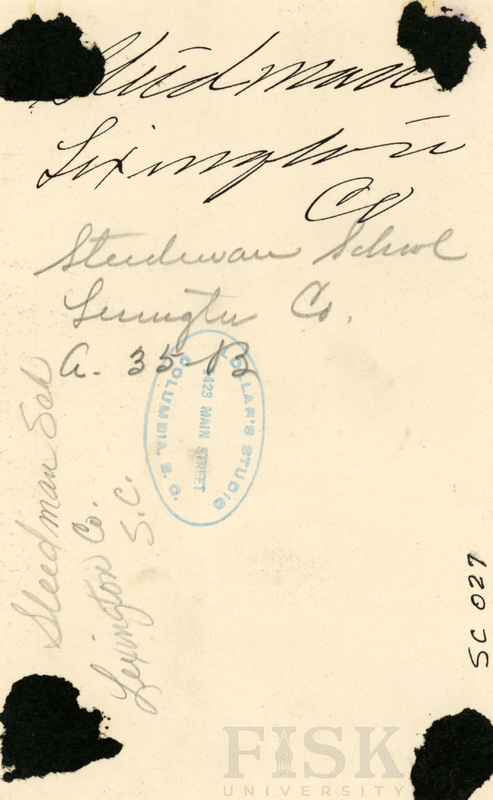 Steidman
Lexington
Co
Steedman School
Lexington Co.
A. 35-B
DOLLAR'S STUDIO
1423 MAIN STREET
COLUMBIA, S. C.
Steedman Sch
Lexington Co.
S.C.
SC 027
FISK
UNIVERSITY